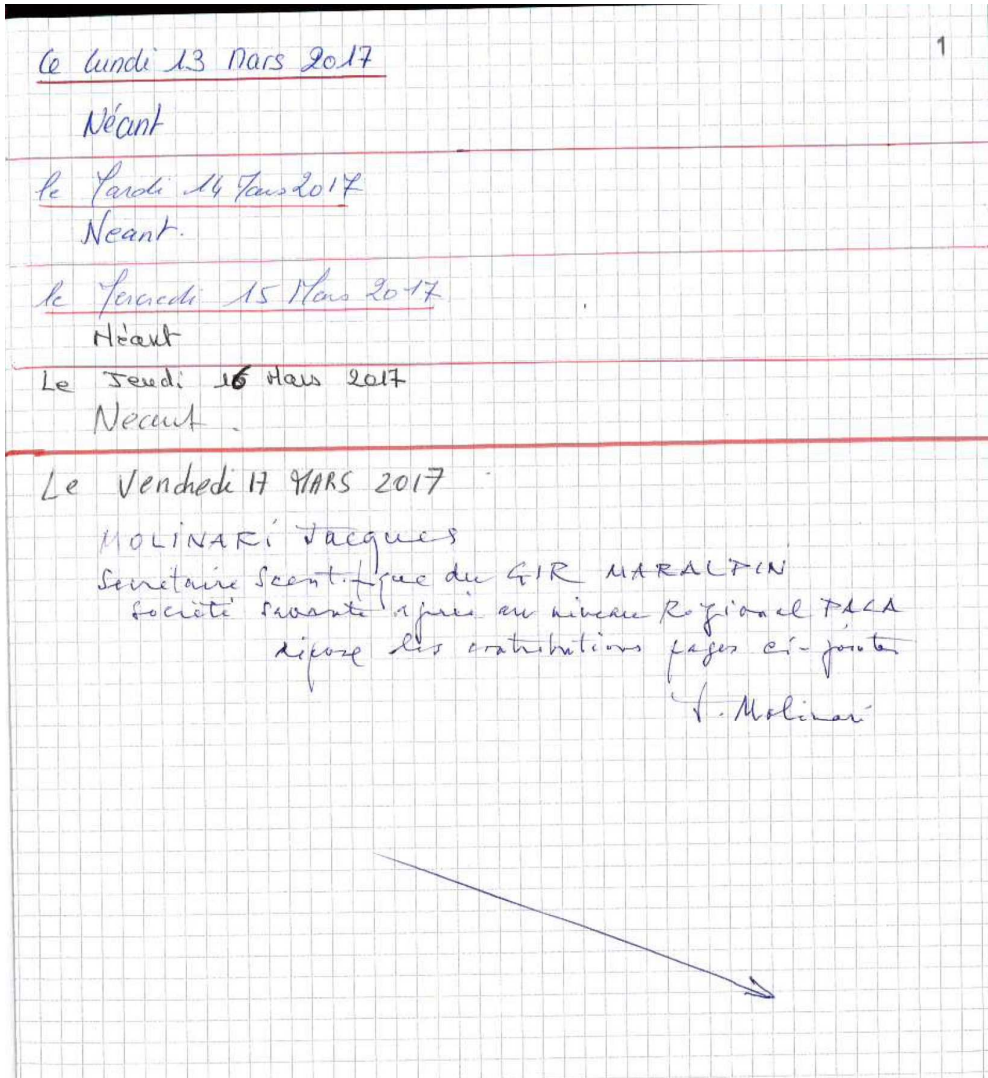 1
Le lundi 13 Mars 2017
Néant
le Mardi 14 Mars 2017
Neant.
le Mercredi 15 Mars 2017
Néant
Le Jeudi 16 Mars 2017
Neant.
Le Vendredi 17 MARS 2017
MOLINARI Jacques
Secretaire Scientifique du GIR MARALPIN
Société Savante au niveau Régional PACA
dépose les contributions pages ci-jointes
J. Molinari